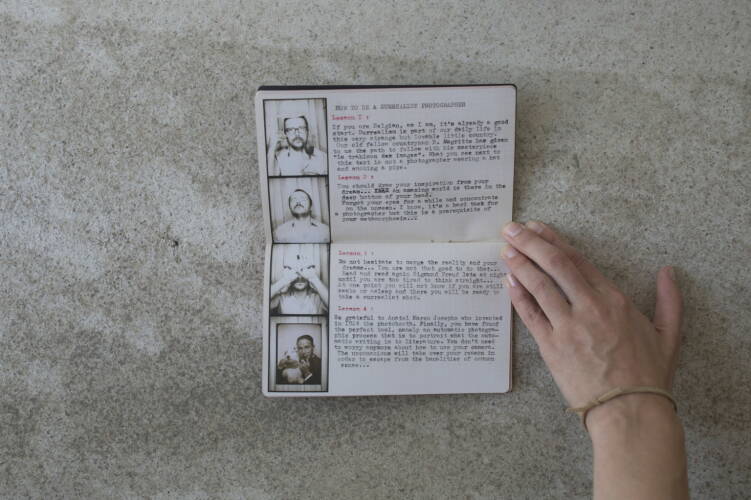 HOW TO BE A SURREALIST PHOTOGRAPHER
Lesson 1 :
If you are Belgian, as I am, it's already a good
start. Surrealism is part of our daily life in
this very strange but lovable little country.
Our old fellow countryman R. Magritte has given
to us the path to follow with his masterpiece
"la trahison des images". What you see next to
this text is not a photographer wearing a hat
and smoking a pipe.
Lesson 2 :
You should draw your inspiration from your
dreams... An amazing world is there in the
deep bottom of your head.
Forget your eyes for a while and concentrate
on the screen. I know, it's a hard task for
a photographer but this is a prerequisite of
your metamorphosis...
Lesson 3 :
Do not hesitate to merge the reality and your
dreams... You are not that good to do that...
read and read again Sigmund Freud late at night
until you are too tired to think straight...
At one point you will not know if you are still
awake or asleep and there you will be ready to
take a surrealist shot.
Lesson 4 :
Be grateful to Anatol Marco Josepho who invented
in 1924 the photobooth. Finally, you have found
the perfect tool, namely an automatic photogra-
phic process that is to portrait what the auto-
matic writing is to literature. You don't need
to worry anymore about how to use your camera.
The unconscious will take over your reason in
order to escape from the banalities of common
sense...